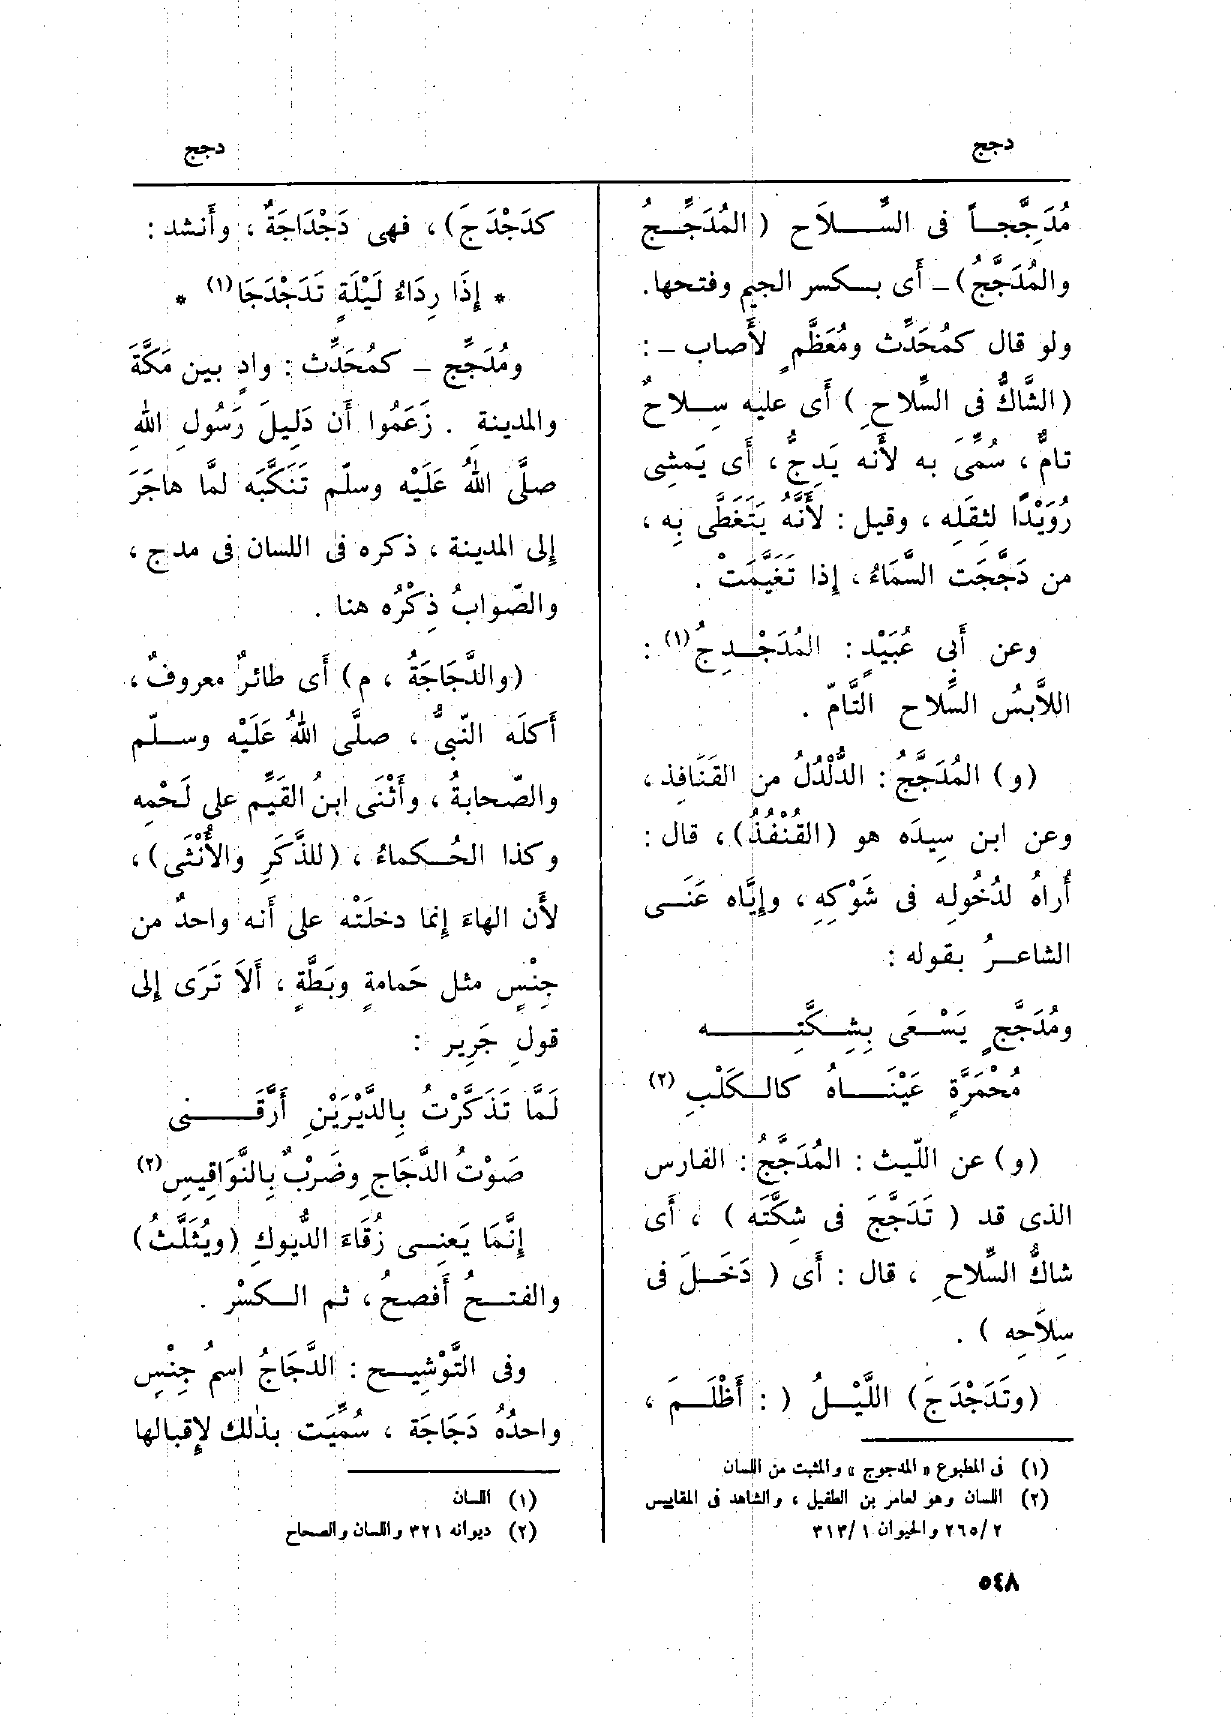 دجج
دجج
مُدَجَّجِجاً فى السِّلَاح ( المُدَجِّجُ
والمُدَجَّجُ) – أى بكسر الجيم وفتحها.
ولو قال كمُحَدِّث ومُعَظَّمٍ لأَصاب – :
(الشَّاكُّ فى السِّلاحِ ) أَى عليه سِلاحٌ
تامٌّ ، سُمِّىَ به لأَنه يَدِجُّ ، أَى يَمشِى
رُوَيْدًا لثِقَلِه ، وقيل : لأَنَّهُ يَتَغَطَّى بِه ،
من دَجَّجَت السَّمَاءُ ، إذا تَغَيَّمَتْ .
وعن أَبِى عُبَيْدٍ : المُدَجْدِجُ(١) :
اللاَّبِسُ السِّلاح التَّامّ .
(و) المُدَجَّجُ : الدُّلْدُلُ من القَنَافِذ ،
وعن ابن سِيدَه هو (القُنْفُذُ) ، قال :
أُراهُ لدُخُولِه فى شَوْكِهِ ، وإِيَّاه عَنَى
الشاعرُ بقوله :
ومُدَجَّجٍ يَسْعَى بِشِكَّتِه
مُحْمَرَّةٍ عَيْنَاهُ كالكَلْبِ (٢)
(و) عن اللّيث : المُدَجَّجُ : الفارس
الذى قد ( تَدَجَّجَ فى شِكَّتَه ) ، أَى
شاكُّ السِّلاحِ ، قال : أَى ( دَخَلَ فى
سِلاَحِه ) .
(وتَدَجْدَجَ) اللَّيْلُ ( : أَظْلَمَ ،
(١) فى المطبوع « المدجوج » والمثبت من اللسان
(٢) اللسان وهو لعامر بن الطفيل ، والشاهد فى المقاييس
٢/ ٢٦٥ والحيوان ١ /٣١٣
كدَجْدَجَ) ، فهى دَجْدَاجَةٌ ، وأَنشد :
* إِذَا رِدَاءُ لَيْلَةٍ تَدَجْدَجَا(١) *
ومُدَجِّج – كمُحَدِّث : وادٍ بين مَكَّةَ
والمدينةِ . زَعَمُوا أَن دَلِيلَ رَسُولِ اللهِ
صلَّى اللهُ عَلَيْه وسلّم تَنَكَّبَه لمَّا هاجَرَ
إِلى المدينة ، ذكره فى اللسان فى مدج ،
والصّوابُ ذِكْرُه هنا .
(والدَّجَاجَةُ ، م) أَى طائرٌ معروفٌ ،
أَكلَه النّبىُّ ، صلَّى اللهُ عَلَيْه وسلّم
والصّحابةُ ، وأَثْنَى ابنُ القَيِّم على لَحْمِه
وكذا الحُكماءُ ، (للذَّكَرِ والأُنْثَى) ،
لأَن الهاءَ إِنما دخلَتْه على أَنه واحدٌ من
جِنْسٍ مثل حَمامةٍ وبَطَّةٍ ، أَلاَ تَرَى إِلى
قولِ جَرِير :
لَمَّا تَذَكَّرْتُ بِالدَّيْرَيْنِ أَرَّقَنى
صَوْتُ الدَّجَاجِ وضَرْبٌ بِالنَّوَاقِيسِ(٢)
إِنَّمَا يَعنِى زُقَاءَ الدُّيوكِ (ويُثَلَّثُ)
والفتحُ أَفصحُ ، ثم الكسْر .
وفى التَّوْشِيح : الدَّجَاجُ اسمُ جِنْسٍ
واحدُه دَجَاجَة ، سُمِّيَت بذٰلك لإِقبالها
(١) اللسان
(٢) ديوانه ٣٢١ واللسان والصحاح
٥٤٨